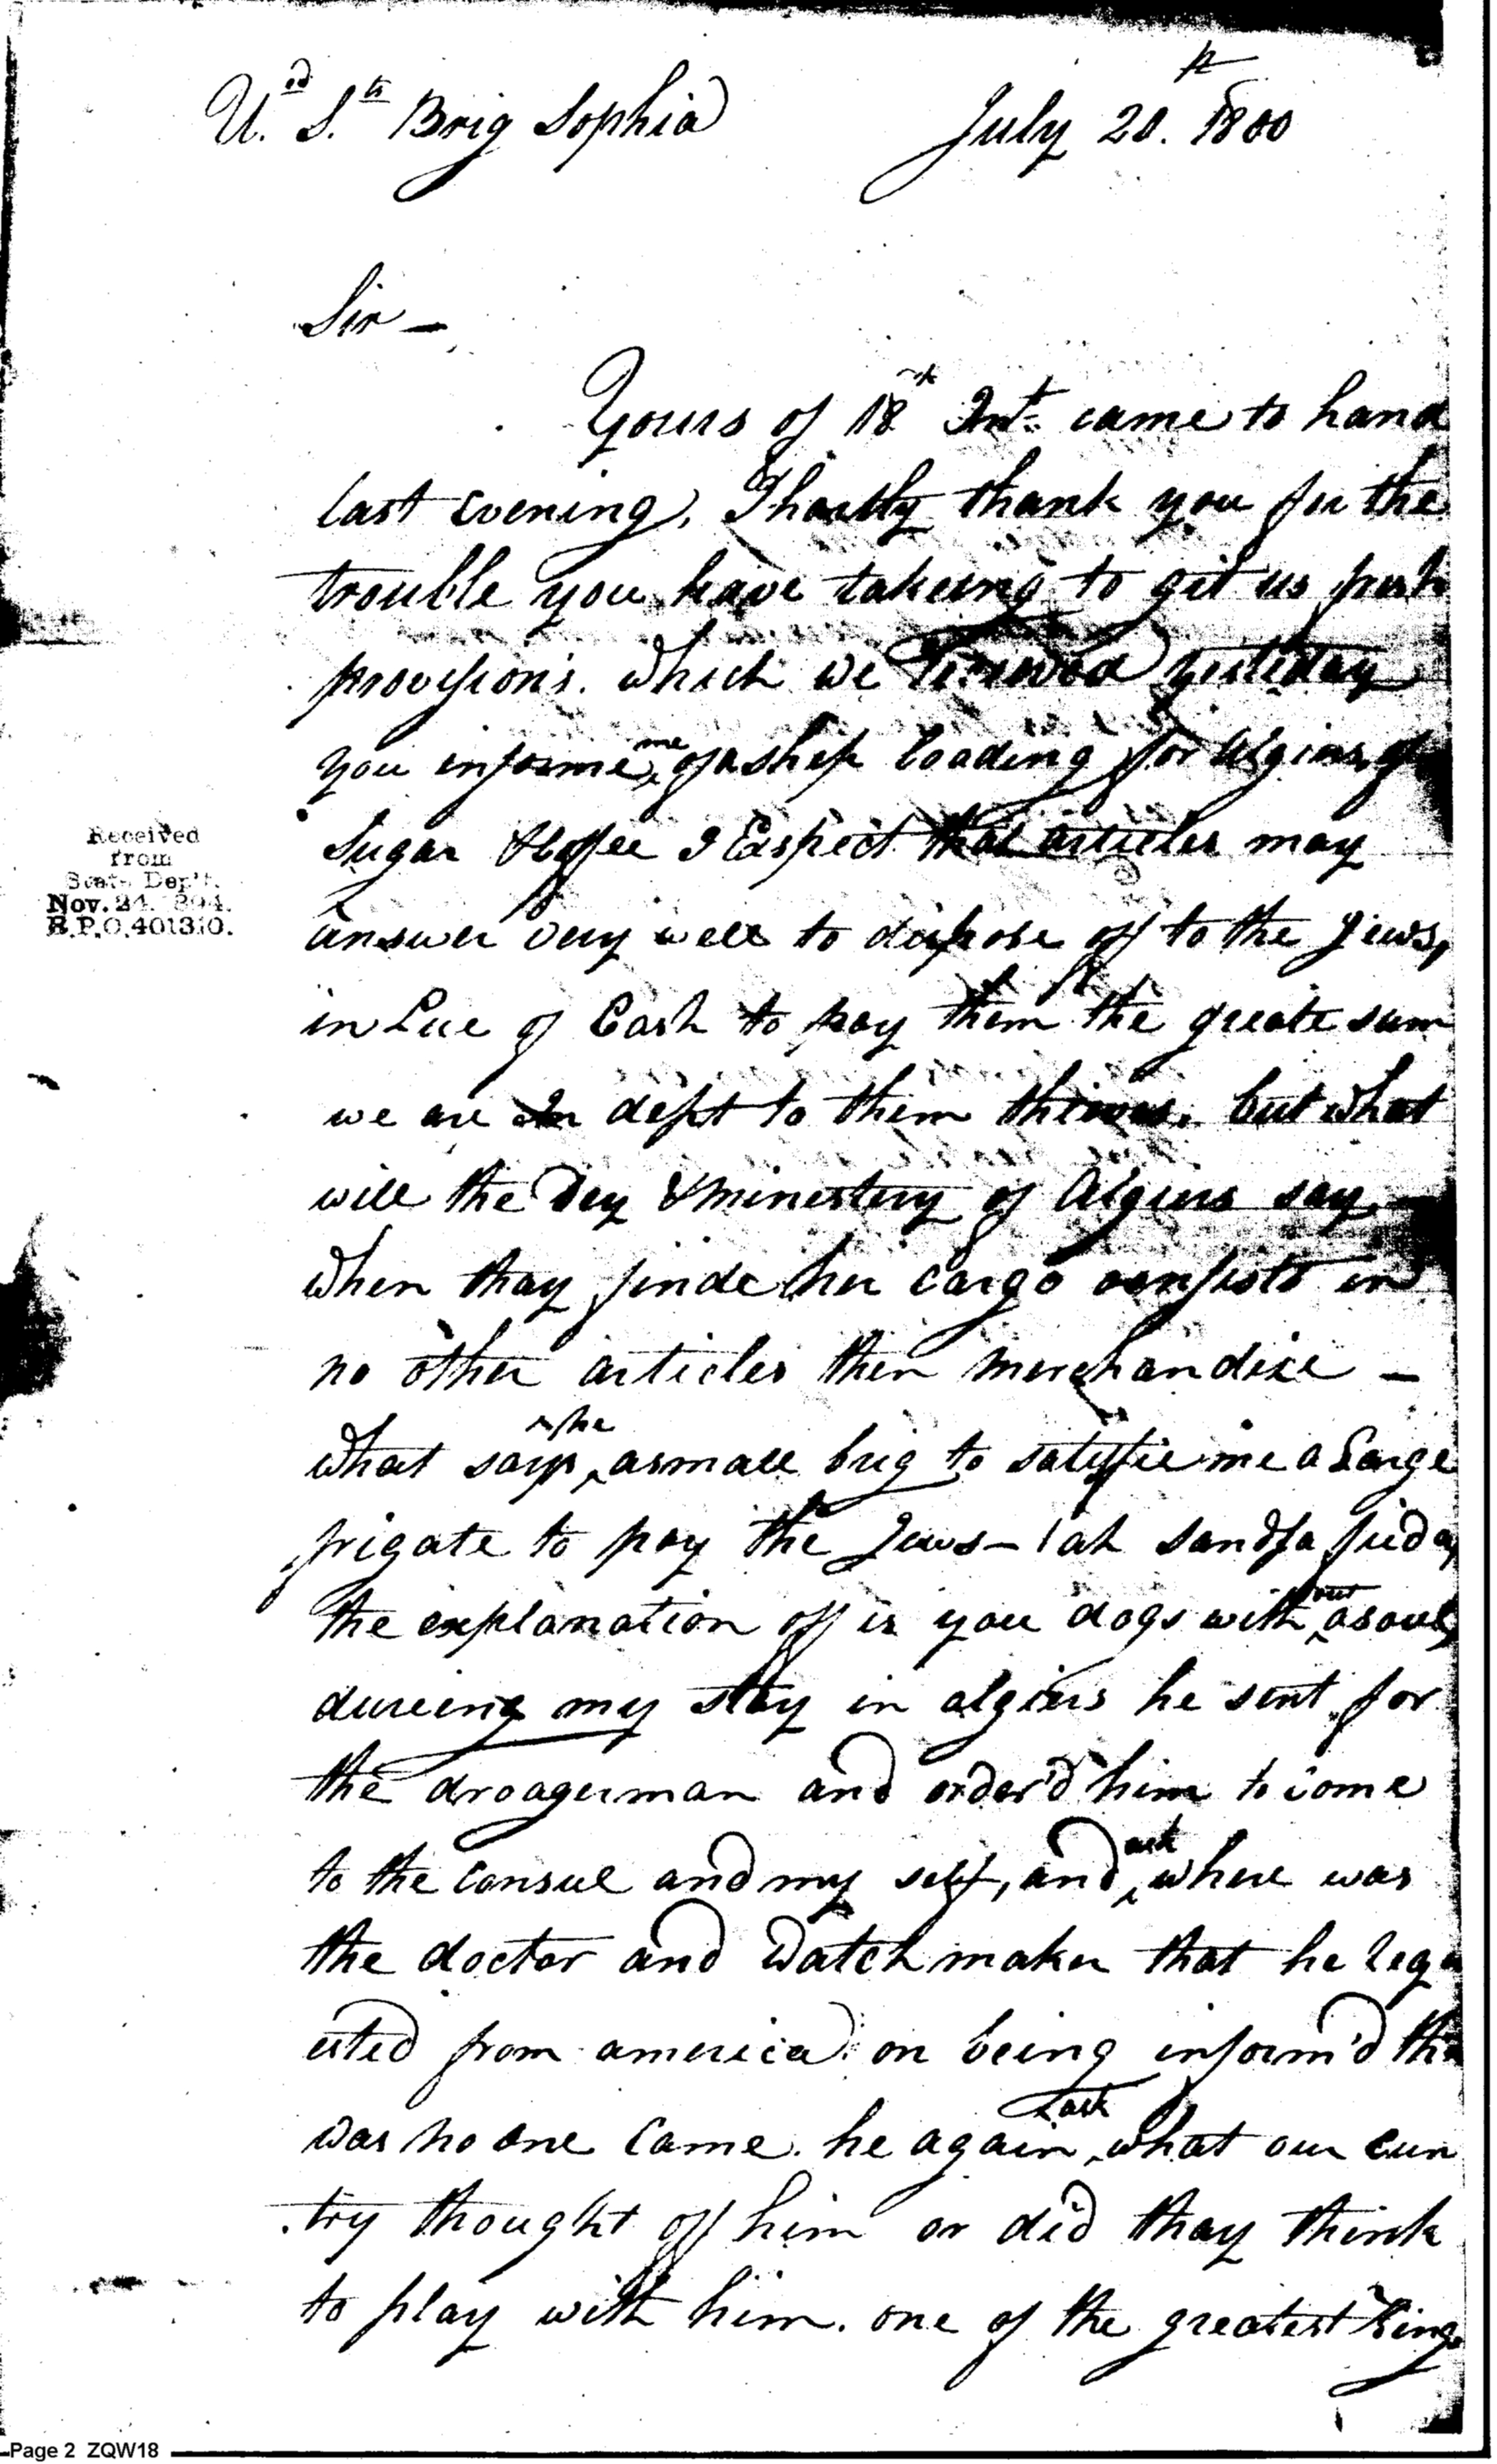 U.ed S.ts Brig Sophia July 20.th 1800
Sir —
Yours of 18th Inst. came to hand
last evening, I hartly thank you for the
trouble you have takeing to git us fresh
provisions. which we received yesterday
you informe me of a ship loading for Algiers, of
Sugar & Coffee I Exspect that articles may
answer very well to dispose off to the Jews,
in Lue of Cash to pay them the greate sum
we are In dept to them thieves. but what
will the Dey & minestery of Algiers say —
when thay finde her cargo consists in
no other articles then merchandise —
what says he, a small brig to satisfie me a Large
frigate to pay the Jews —
the explanation off is you dogs without a soul,
dureing my stay in algiers he sent for
the droagerman and order'd him to come
to the consul and my self, and ask where was
the doctor and Watch maker that he requ
ested from america on being inform'd tha
was no one Came. he again ask what our cun
try thought off him or did thay think
to play with him. one of the greatest Kings
Received
from
State Dep't.
Nov. 24. 1894.
R.P.O. 401310.
Page 2 ZQW18